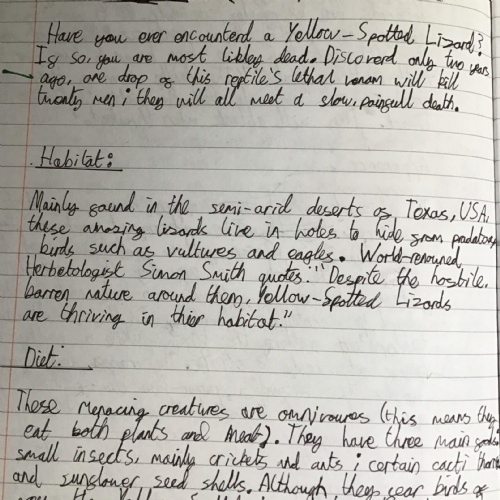 Have you ever encounterd a Yellow-Spotted Lizard?
If so, you are most libley dead. Discoverd only two years
ago, one drop of this reptile's lethal venam will kill
twenty men; they will all meet a slow, painfull death.
Habitat:
Mainly found in the semi-arid deserts of Texas, USA,
these amazing lizards live in holes to hide from predatory
birds such as vultures and eagles. World-renouned
Herbetologist Simon Smith quotes: "Despite the hostile,
barren nature around them, Yellow-Spotted Lizards
are thriving in thier habitat."
Diet:
These menacing creatures are omnivoures (this means they
eat both plants and meat). They have three main foods:
small insects, mainly crickets and ants; certain cacti
and sunflower seed shells. Although they fear birds of